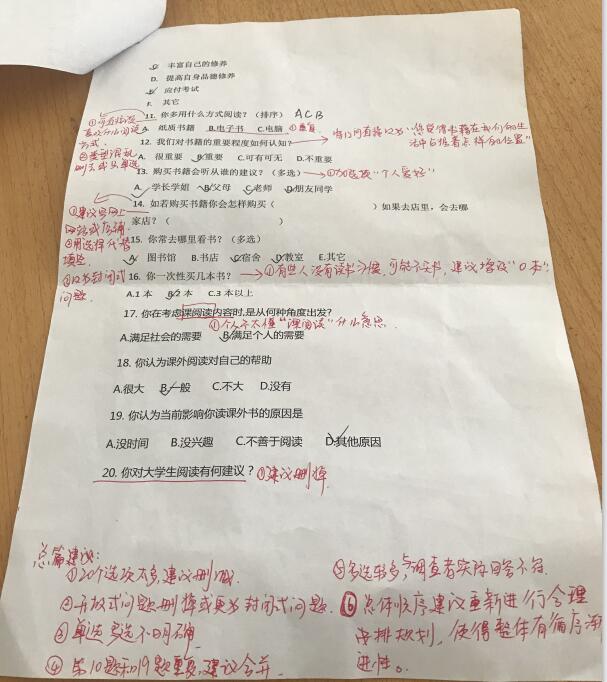 C. 丰富自己的修养
D. 提高自身品德修养
E. 应付考试
F. 其它
11. 你多用什么方式阅读?(排序) ACB
A. 纸质书籍 B.电子书 C.电脑 ①重复
12. 我们对书籍的重要程度如何认知?
A. 很重要 B.重要 C.可有可无 D.不重要
13. 购买书籍会听从谁的建议?(多选) ①加选项"个人喜好"
A. 学长学姐 B.父母 C.老师 D.朋友同学
14. 如若购买书籍你会怎样购买( )如果去店里,会去哪
家店?( )
15. 你常去哪里看书?(多选)
A. 图书馆 B.书店 C.宿舍 D.教室 E.其它
16. 你一次性买几本书? ①有些人没有读书习惯,可能不买书,建议增设"0本"
A.1 本 B.2 本 C.3 本以上
17. 你在考虑课阅读内容时,是从何种角度出发?
①个人不太懂"课阅读"什么意思.
A.满足社会的需要 B.满足个人的需要
18. 你认为课外阅读对自己的帮助
A.很大 B.一般 C.不大 D.没有
19. 你认为当前影响你读课外书的原因是
A.没时间 B.没兴趣 C.不善于阅读 D.其他原因
20. 你对大学生阅读有何建议? ①建议删掉
方式
①建议写网上
网站或店铺
②用选择代替
填空.
①改为封闭式
问题.
总篇建议:
①20个选项太多,建议删减.
②开放式问题删掉或更为封闭式问题.
③单选多选不明确.
④第10题和19题重复,建议合并.
⑤多选较多,与调查者实际回答不符.
⑥总体顺序建议重新进行合理
安排规划,使得整体有循序渐
进性。